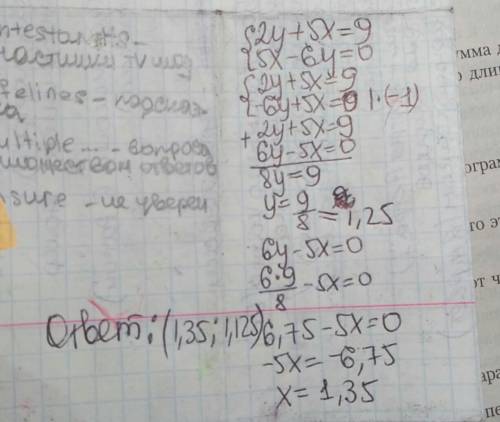 ntestants -
частники тv шоу
felines - подсказ
ка
ultiple ... - вопросы
множеством ответов
nsure - не уверен
{2y+5x=9
{5x-6y=0
{2y+5x=9
{-6y+5x=0 |·(-1)
+ 2y+5x=9
6y-5x=0
8y=9
y=9/8=1,25
6y-5x=0
6·9/8 -5x=0
6,75-5x=0
-5x=-6,75
x=1,35
Ответ: (1,35; 1,125)
умма
длин
ограм
то э
от ч
ара
пе